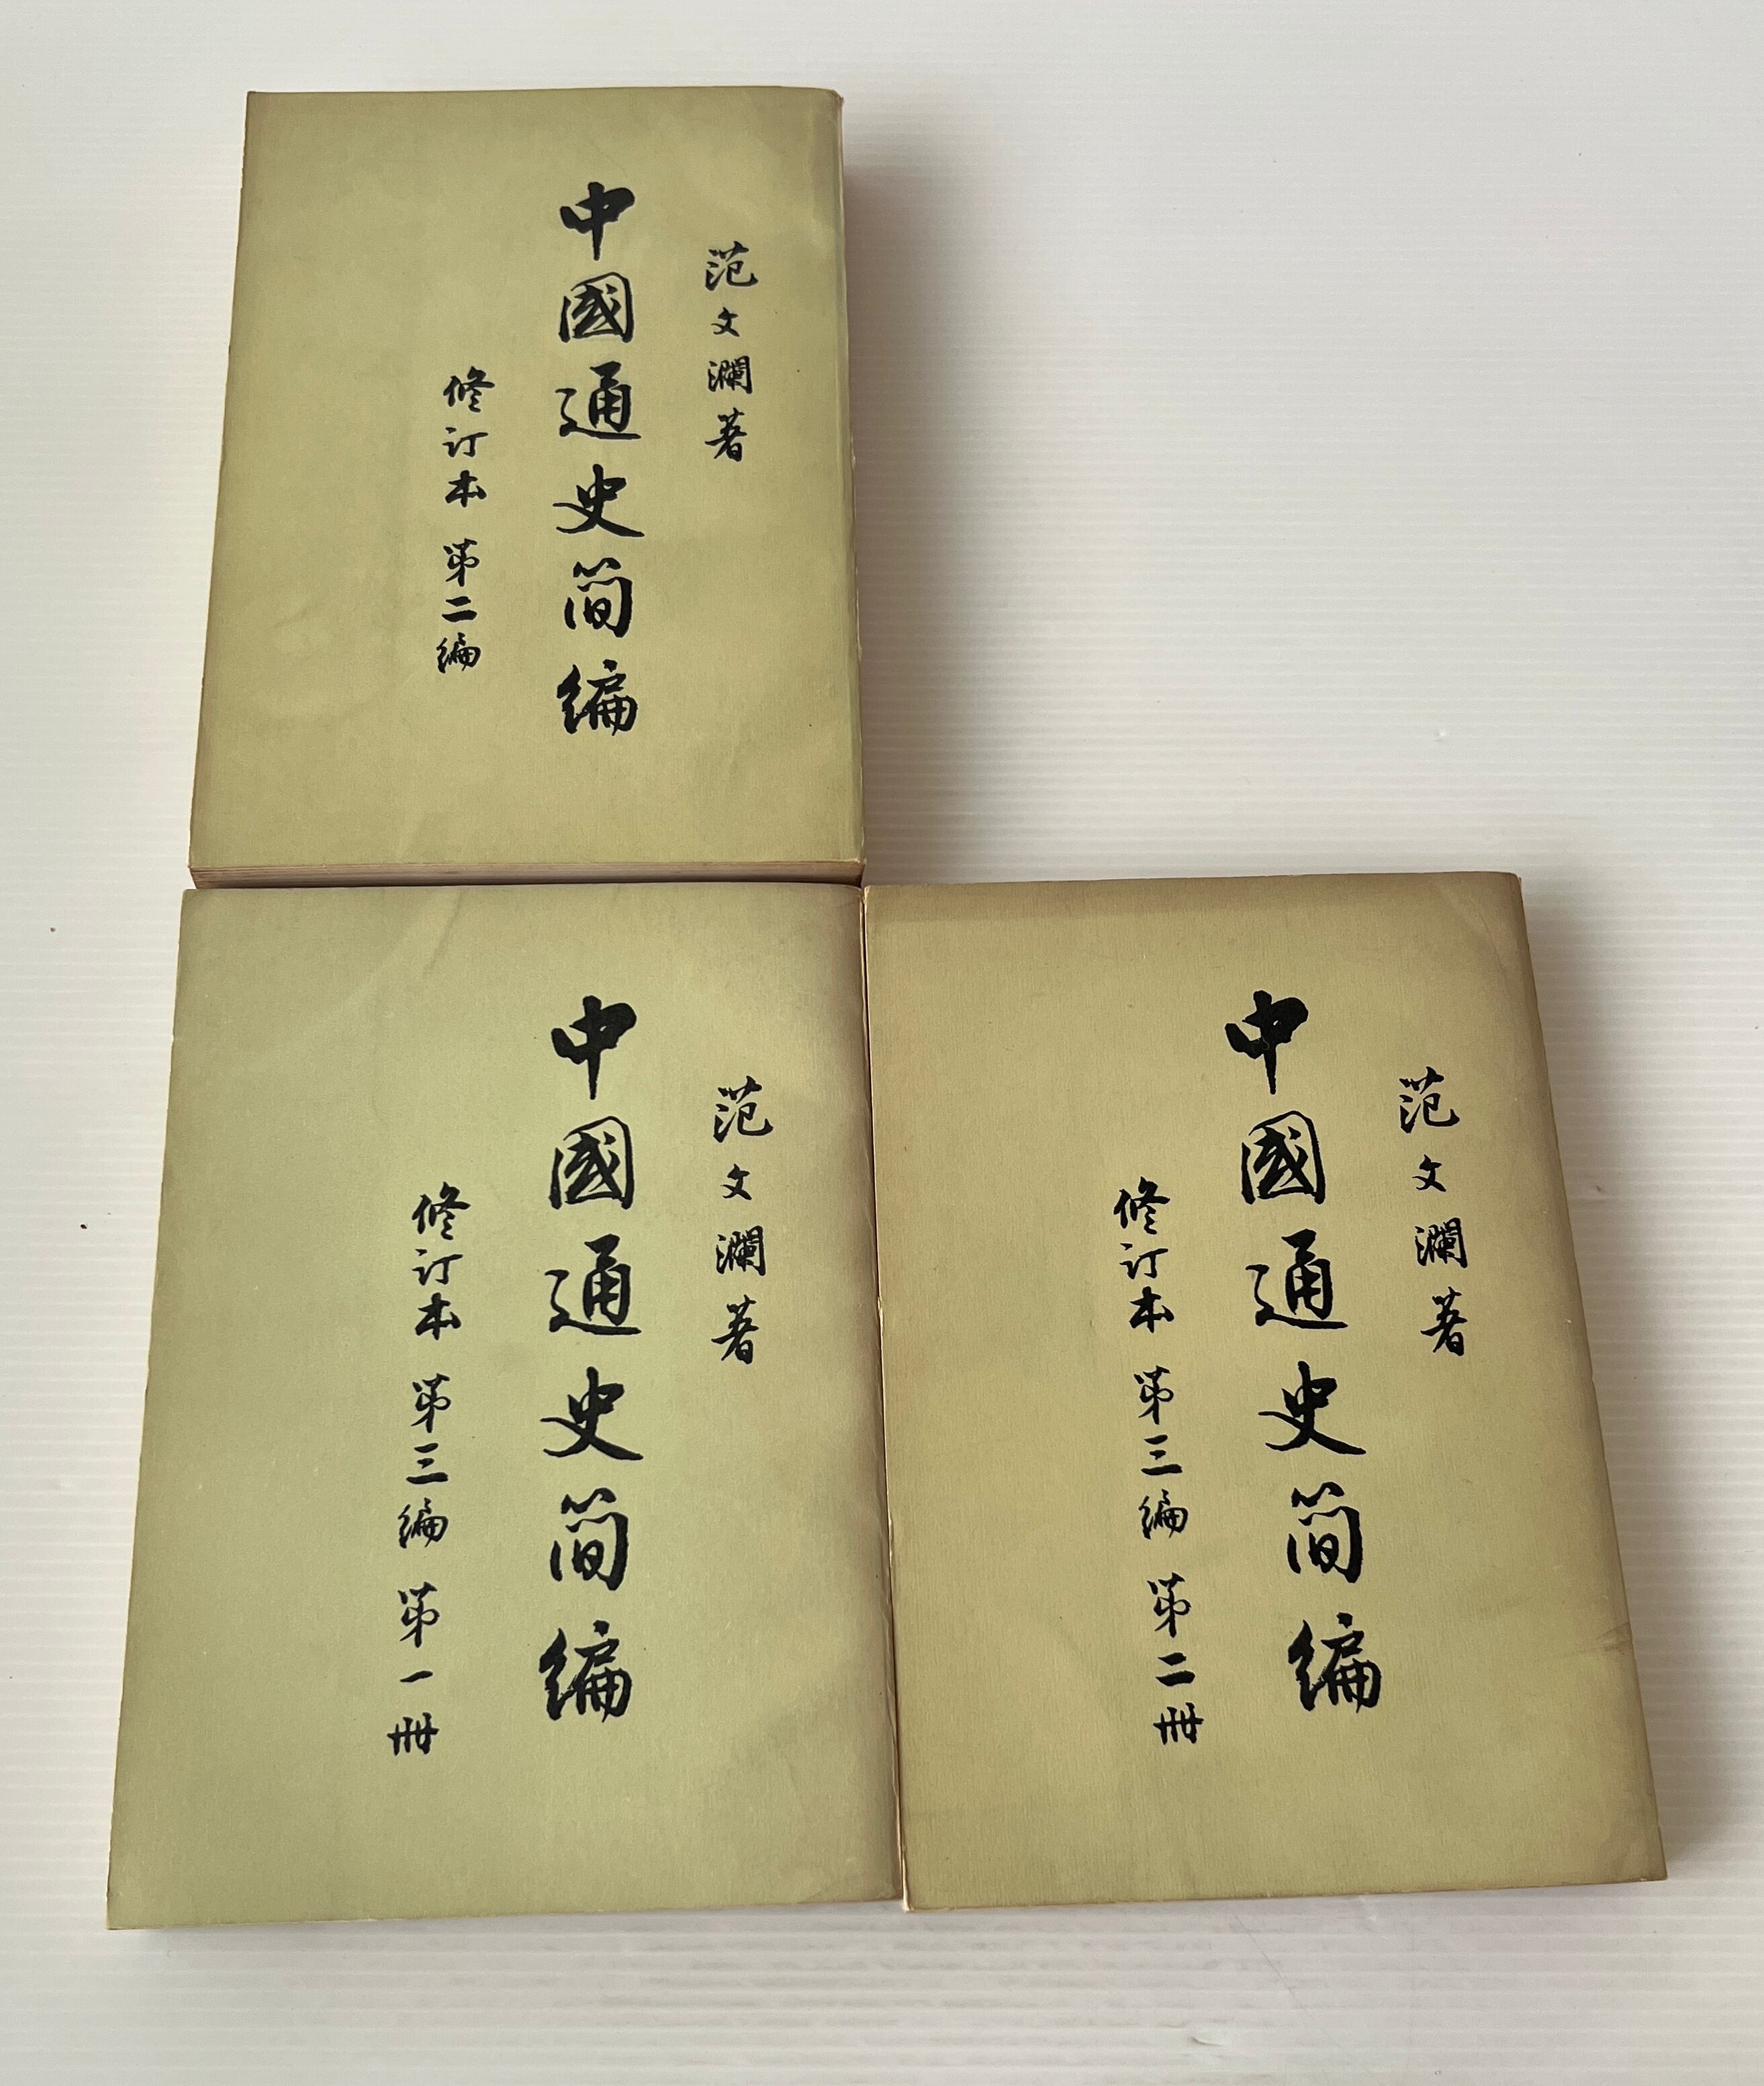 范文瀾著
中國通史简编
修订本 第二编
范文瀾著
中國通史简编
修订本 第三编 第一册
范文瀾著
中國通史简编
修订本 第三编 第二册